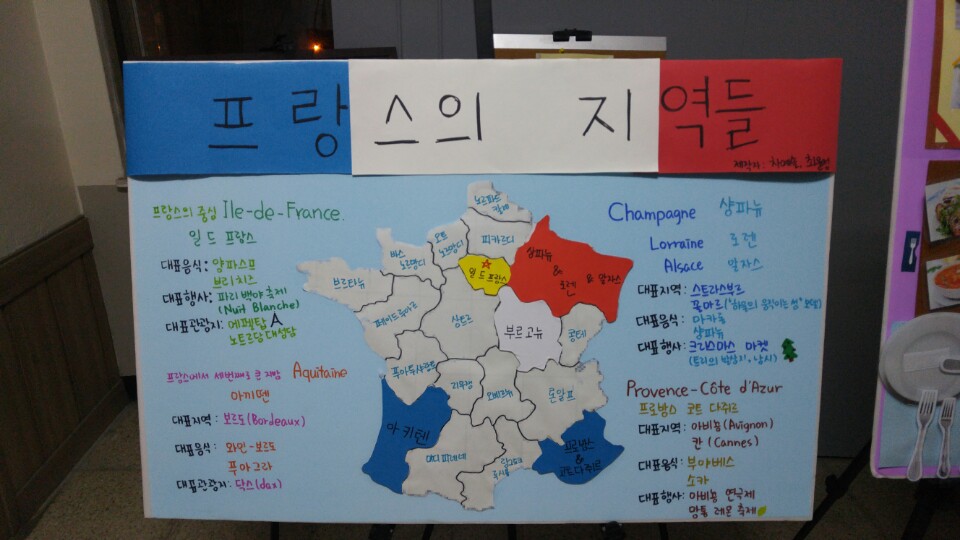 프랑스의 지역들
제작자: 차예슬,
프랑스의 중심 Ile-de-France.
일 드 프랑스
대표음식: 양파스프
브리치즈
대표행사: 파리 백야 축제
(Nuit Blanche)
대표관광지: 에펠탑
노트르담 대성당
프랑스에서 세번째로 큰 지방 Aquitaine
아끼뗀
대표지역: 보르도(Bordeaux)
대표음식: 와인-보르도
푸아그라
대표관광지: 닥스(dax)
노르파드
칼레
피카르디
오트
노르망디
바스
노르망디
일 드 프랑스
샹파뉴
&
로렌 & 알자스
브르타뉴
상트르
부르고뉴
콩테
리무쟁
오베르뉴
론알프
아키텐
미디 피레네
프로방스
&
코트다쥐르
Champagne 샹파뉴
Lorraine 로렌
Alsace 알자스
대표지역: 스트라스부르
대표음식: 마카롱
샹파뉴
대표행사: 크리스마스 마켓
Provence-Côte d'Azur
프로방스 코트 다쥐르
대표지역: 아비뇽(Avignon)
칸(Cannes)
대표음식: 부야베스
소카
대표행사: 아비뇽 연극제
망통 레몬 축제